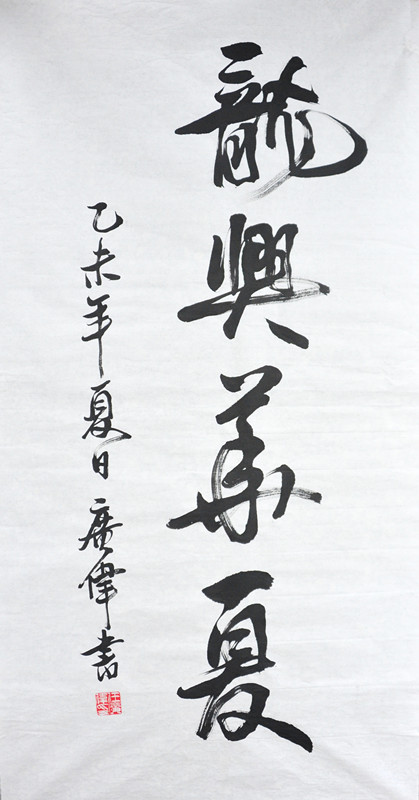 龍興華夏
乙未年夏日廣偉書